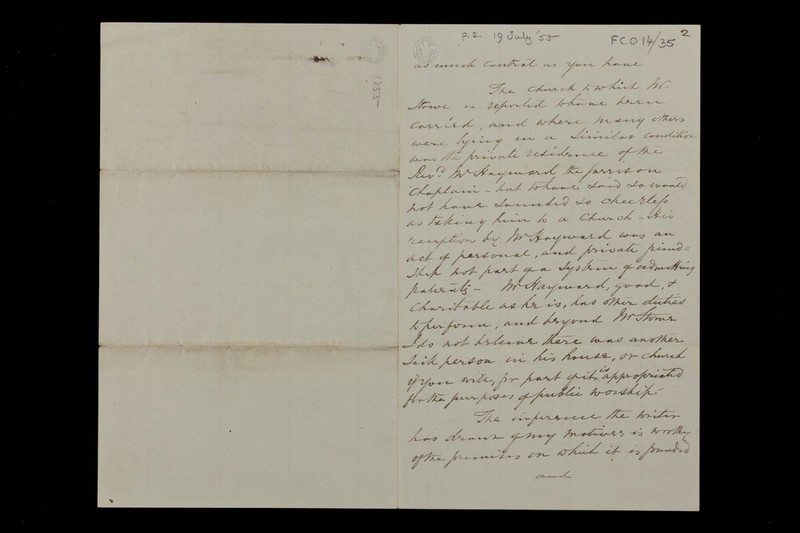 p.2. 19 July '55
FCO 14/35 2
as much control as you have
The church to which Mr.
Stowe is reported to have been
carried, and where many others
were lying in a similar condition
was the private residence of the
Revd. Mr Hayward the garrison
Chaplain - but to have said so would
not have sounded so cheerless
as taking him to a Church - His
reception by Mr Hayward was an
act of personal, and private friend=
ship not part of a System of admitting
patients - Mr Hayward, good, &
Charitable as he is, has other duties
to perform, and beyond Mr Stowe
I do not believe there was another
Sick person in his house, or church
if you will, for part of it is appropriated
for the purposes of public worship
The inference the writer
has drawn of my motives is worthy
of the premises on which it is founded
and